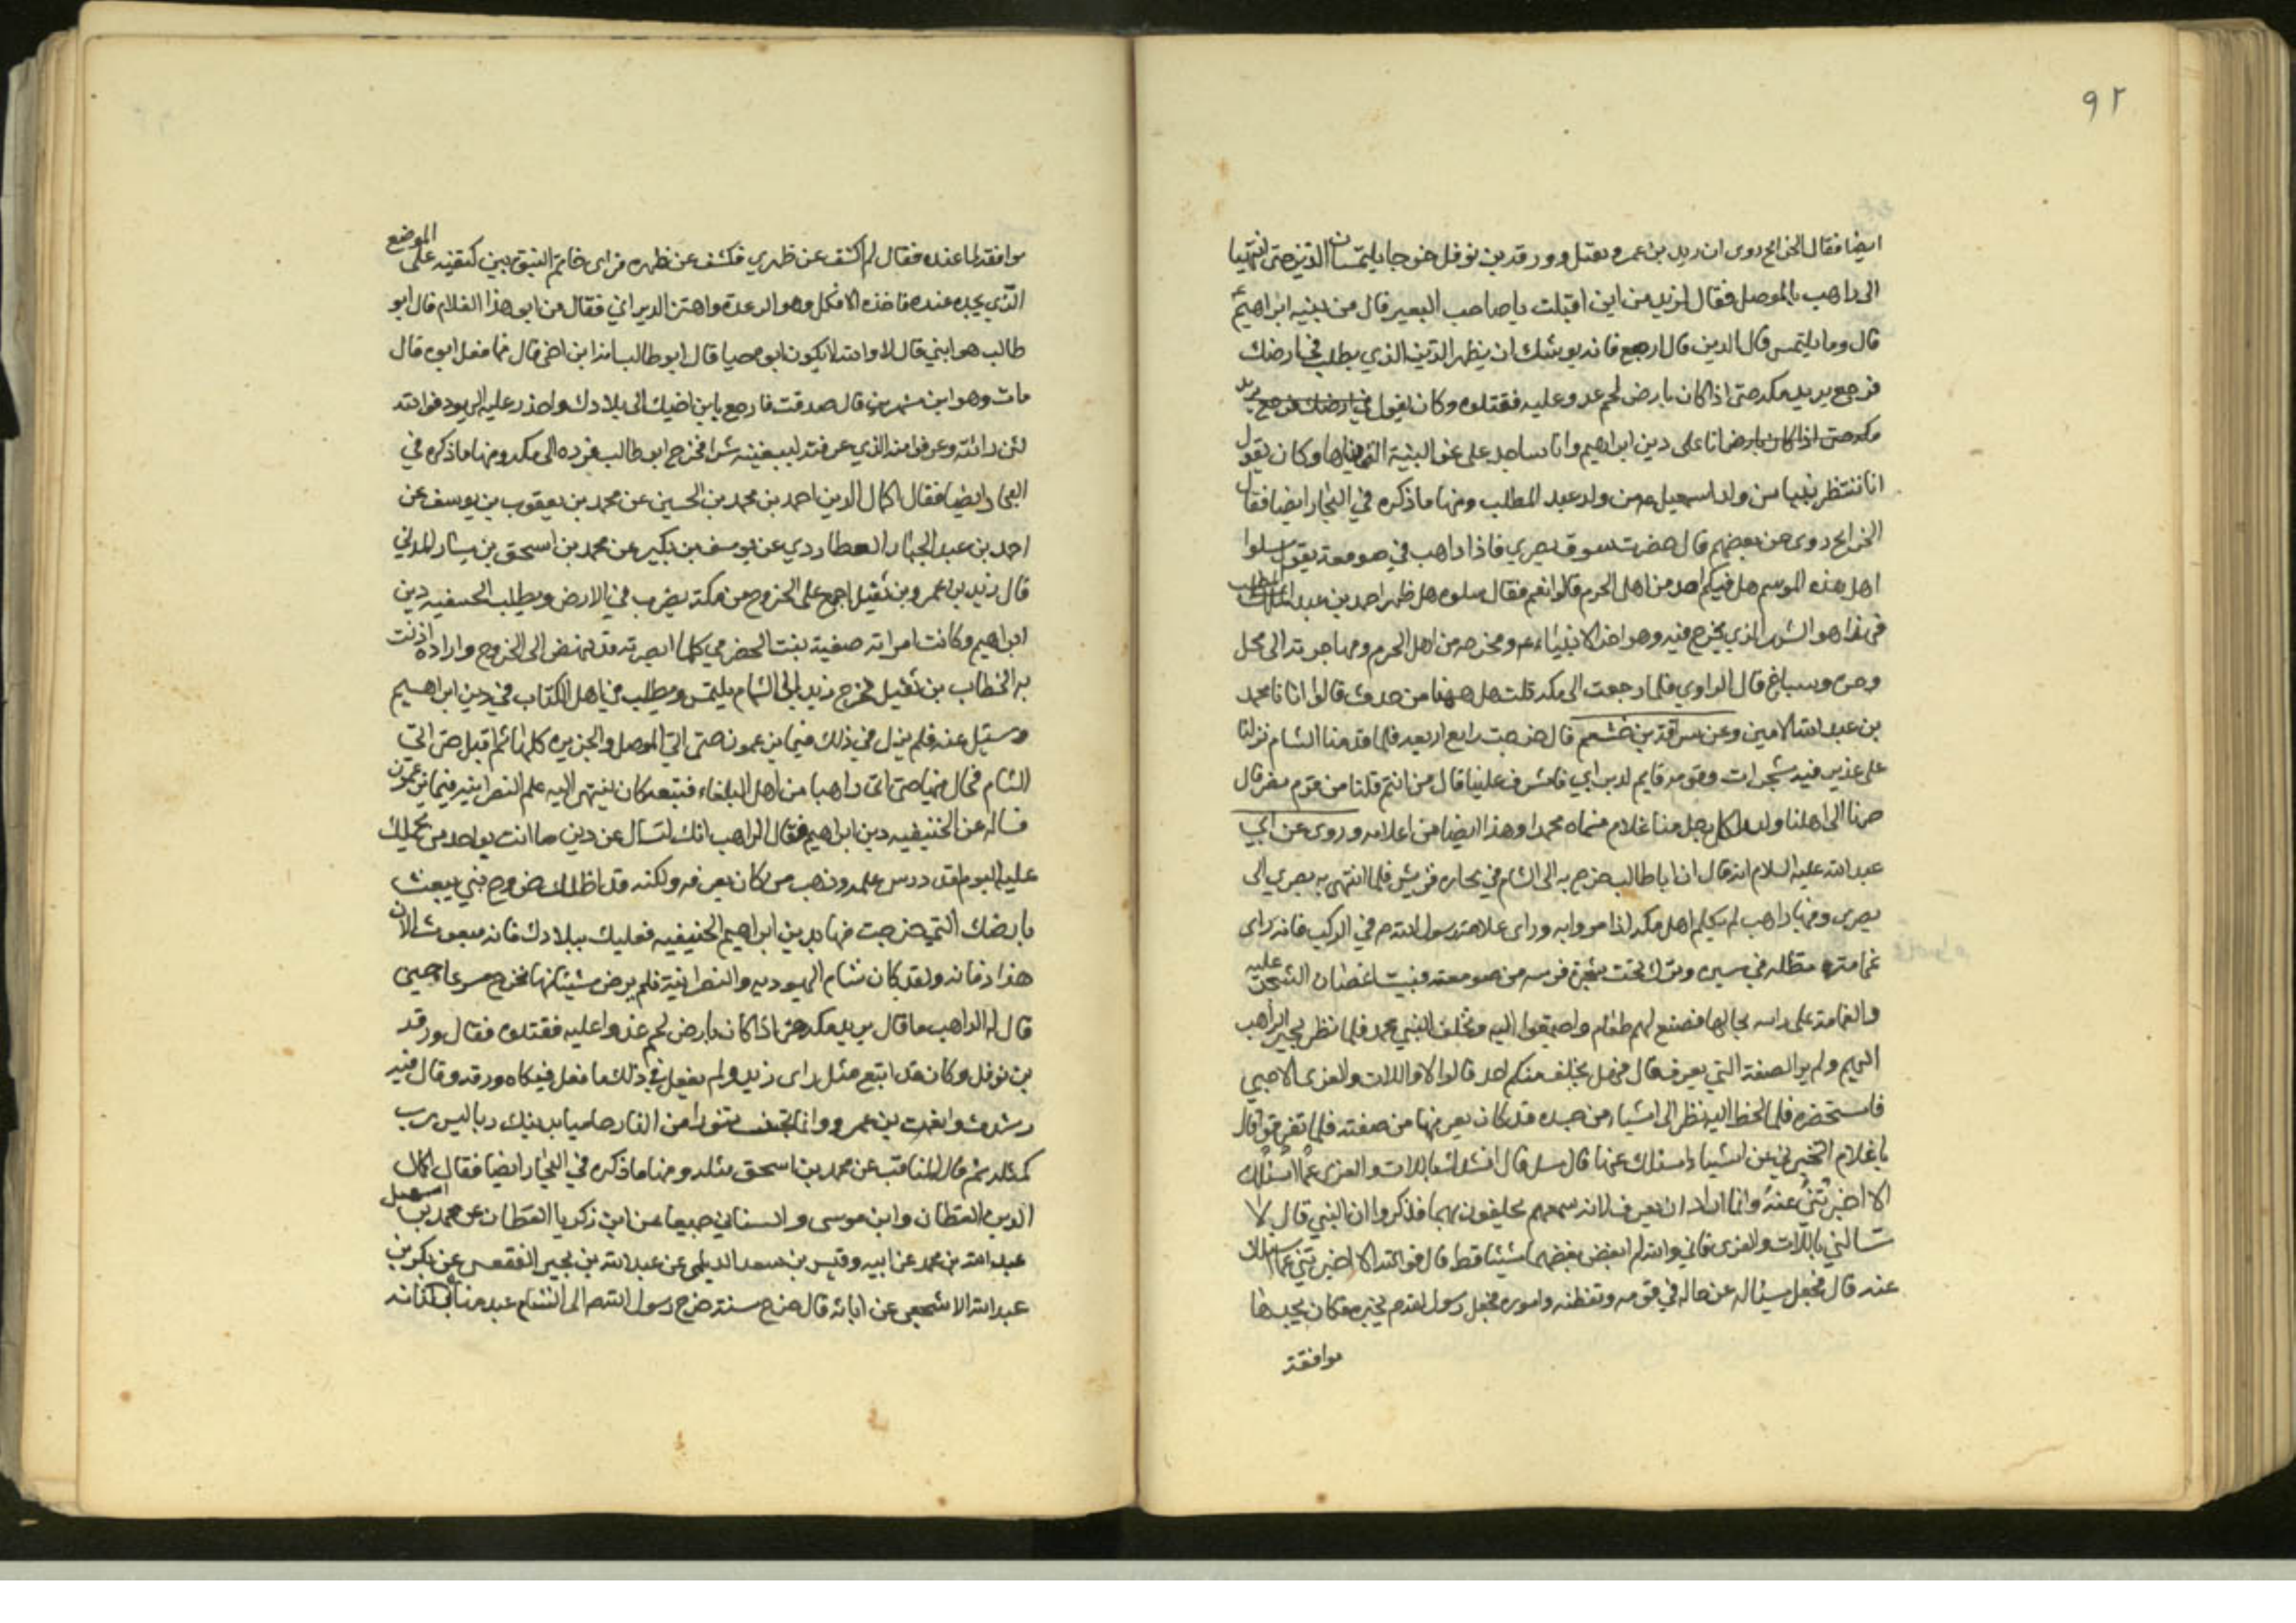 ٩٢
ايضا فقال الخرايج روى ان زيد بن عمرو بن نفيل وورقة بن نوفل خرجا يلتمسان الدين حتى انتهيا
الى راهب بالموصل فقال لزيد من اين اقبلت يا صاحب البعير قال من بنية ابراهيم
قال وما يلتمس قال الدين قال ارجع فانه يوشك ان يظهر الدين الذي يطلب في ارضك
فرجع يريد مكة حتى اذا كان بارض لحم عدو عليه فقتلوه وكان يقول في ارضك فرجع يريد
مكة حتى اذا كان بارض انا على دين ابراهيم وانا ساجد على نحو البنية التي بناها وكان يقول
انا ننتظر نبيا من ولد اسمعيل من ولد عبد المطلب ومنها ما ذكره في البحار ايضا فقال
الخرايج روى عن بعضهم قال حضرت سوق بصرى فاذا راهب في صومعة يقول سلوا
اهل هذه الموسم هل فيكم احد من اهل الحرم قالوا نعم فقال سلوه هل ظهر احمد بن عبد المطلب
فهذا هو الشهر الذي يخرج فيه وهو اخر الانبياء ومخرجه من اهل الحرم ومهاجرته الى نخل
وحره وسباخ قال الراوي فلما رجعت الى مكة قلت هل ههنا من حدث قالوا اتانا محمد
بن عبد الله الامين وعن سراقة بن خثعم قال خرجت رابع اربعه فلما قدمنا الشام نزلنا
على غدير فيه شجرات وقومه قايم لديراني فاشرف علينا قال من انتم قلنا من قوم مضر قال
صرنا الى اهلنا ولد لكل رجل منا غلام فسماه محمدا وهذا ايضا من اعلامه وروى عن ابي
عبد الله عليه السلام انه قال ان ابا طالب خرج به الى الشام في تجاره قريش فلما انتهى به بصري الى
بصرى وفيها راهب لم يكلم اهل مكه اذا مروا به وراى علامة رسول الله في الركب فانه راى
غمامة مظله في مسيره ونزل تحت شجرة قريبه من صومعته فثنيت اغصان الشجرة عليه
والغمامة على راسه بحالها فصنع لهم طعام واجتمعوا اليه وتخلف النبي محمد فلما نظر بحير الراهب
اليهم ولم ير الصفة التي يعرف قال فهل يخلف منكم احد قالوا لا واللات والعزى الا صبي
فاستحضره فلما لحظ اليه نظر الى اشياء من جسده قد كان يعرفها من صفته فلما تفرقوا قال
يا غلام اتخبرني عن اشياء اسئلك عنها قال سل قال انشدك باللات والعزى عما اسئلك
الا اخبرتني عنه وانما اراد ان يعرف لانه سمعهم يحلفون بهما فذكروا ان النبي قال لا
تسالني باللات والعزى فاني والله لم ابغض بغضهما شيئا قط قال فوالله الا اخبرتني عما اسئلك
عنه قال فجعل يسئاله عن حاله في قومه ويقظته واموره فجعل رسول الله يخبره فكان يجدها
موافقة
موافقة لما عنده فقال له اكشف عن ظهري فكشف عن ظهره فراى خاتم النبوة بين كتفيه على الموضع
الذي يجده عنده فاخذه الافكل وهو الرعدة واهتز الديراني فقال من ابو هذا الغلام قال ابو
طالب هو ابني قال لا والله لا يكون ابوه حيا قال ابو طالب انه ابن اخي قال فما فعل ابوه قال
مات وهو ابن شهرين قال صدقت فارجع بابن اخيك الى بلادك واحذر عليه اليهود فوالله
لئن رائته وعرفوا منه الذي عرفته ليبغينه شرا فخرج ابو طالب فرده الى مكه ومنها ما ذكره في
البحار ايضا فقال اكمال الدين احمد بن محمد بن الحسين عن محمد بن يعقوب بن يوسف عن
احمد بن عبد الجبار العطاردي عن يوسف بن بكير عن محمد بن اسحق بن يسار المدني
قال زيد بن عمرو بن نفيل اجمع على الخروج من مكة يضرب في الارض ويطلب الحنيفيه دين
ابراهيم وكانت امراته صفية بنت الحضرمي كلما ابصرته قد نهض الى الخروج واراده اذنت
به الخطاب بن نفيل فخرج زيد الى الشام يلتمس ويطلب في اهل الكتاب في دين ابراهيم
وسئيل عنه فلم يزل في ذلك فيما يزعمون حتى اتى الموصل والجزيره كلها ثم اقبل حتى اتى
الشام فجال فيها حتى اتى راهبا من اهل البلقاء فتبعه كان ينتهى اليه علم النصرانيه فيما يزعمون
فساله عن الحنيفيه دين ابراهيم فقال الراهب انك لتسال عن دين ما انت بواجد من يحملك
عليه اليوم لقد درس علمه وذهب من كان يعرفه ولكنه قد اظلك خروج نبي يبعث
بارضك التي خرجت منها بدين ابراهيم الحنيفيه فعليك ببلادك فانه مبعوث الان
هذا زمانه ولقد كان شام اليهوديه والنصرانية فلم يرض شيئا منها فخرج مسرعا حين
قال له الراهب ما قال يريد مكه حتى اذا كان بارض لحم عدوا عليه فقتلوه فقال ورقة
بن نوفل وكان قد اتبع مثل راى زيد ولم يفعل في ذلك ما فعل فبكاه ورقه وقال فيه
رشدت وانعمت بن عمرو وانما تجنبت تنورا من النار حاميا بدينك ربا ليس رب
كمثله ثم قال المناقب عن محمد بن اسحق مثله ومنها ما ذكره في البحار ايضا فقال اكمال
الدين القطان وابن موسى والسناني جميعا عن ابن زكريا القطان عن محمد بن اسمعيل
عبد الله بن محمد عن ابيه وقيس بن سعد الديلي عن عبد الله بن بحير الفقعسي عن بكر بن
عبد الله الاشجعي عن ابائه قال خرج سنة خرج رسول الله الى الشام عبد مناة بن كنانه